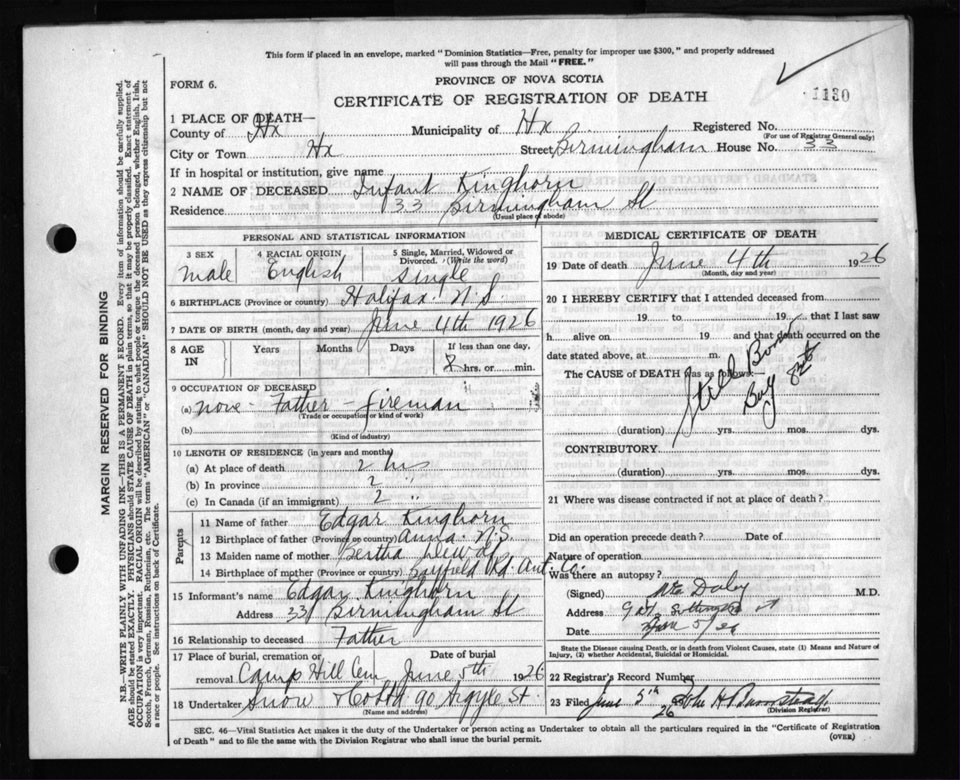 This form if placed in an envelope, marked "Dominion Statistics—Free, penalty for improper use $300," and properly addressed
will pass through the Mail "FREE."
FORM 6.
PROVINCE OF NOVA SCOTIA
CERTIFICATE OF REGISTRATION OF DEATH
1130
1 PLACE OF DEATH—
County of Hx Municipality of Hx Registered No.
(For use of Registrar General only)
City or Town Hx Street Birmingham House No. 33
If in hospital or institution, give name
2 NAME OF DECEASED Infant Kinghorn
Residence 33 Birmingham St
(Usual place of abode)
PERSONAL AND STATISTICAL INFORMATION
3 SEX 4 RACIAL ORIGIN 5 Single, Married, Widowed or
Divorced. (Write the word)
male English single
6 BIRTHPLACE (Province or country) Halifax N.S.
7 DATE OF BIRTH (month, day and year) June 4th 1926
8 AGE IN Years Months Days If less than one day,
hrs. or min.
9 OCCUPATION OF DECEASED
(a) none Father - fireman
(Trade or occupation or kind of work)
(b)
(Kind of industry)
10 LENGTH OF RESIDENCE (in years and months)
(a) At place of death 2 hrs
(b) In province 2 "
(c) In Canada (if an immigrant) 2 "
Parents
11 Name of father Edgar Kinghorn
12 Birthplace of father (Province or country) Anna N.S.
13 Maiden name of mother Bertha
14 Birthplace of mother (Province or country) Bayfield Rd. Ant. Co.
15 Informant's name Edgar Kinghorn
Address 33 Birmingham St
16 Relationship to deceased Father
17 Place of burial, cremation or Date of burial
removal Camp Hill Cem June 5th 1926
18 Undertaker Snow & Co Ltd 90 Argyle St.
(Name and address)
MEDICAL CERTIFICATE OF DEATH
19 Date of death June 4th 1926
(Month, day and year)
20 I HEREBY CERTIFY that I attended deceased from
19 to 19, that I last saw
h alive on 19 and that death occurred on the
date stated above, at m.
The CAUSE OF DEATH was as follows:
Still Born
Boy
(duration) yrs. mos. dys.
CONTRIBUTORY
(duration) yrs. mos. dys.
21 Where was disease contracted if not at place of death?
Did an operation precede death? Date of
Nature of operation
Was there an autopsy?
(Signed) M.D.
Address
Date
State the Disease causing Death, or in death from Violent Causes, state (1) Means and Nature of
Injury, (2) whether Accidental, Suicidal or Homicidal.
22 Registrar's Record Number
23 Filed June 5th 26
(Division Registrar)
SEC. 46—Vital Statistics Act makes it the duty of the Undertaker or person acting as Undertaker to obtain all the particulars required in the "Certificate of Registration
of Death" and to file same with the Division Registrar who shall issue the burial permit.
(OVER)
MARGIN RESERVED FOR BINDING
N.B.—WRITE PLAINLY WITH UNFADING INK—THIS IS A PERMANENT RECORD. Every item of information should be carefully supplied.
AGE should be stated EXACTLY. PHYSICIANS should STATE CAUSE OF DEATH in plain terms, so that it may be properly classified. Exact statement of
OCCUPATION is very important. RACIAL ORIGIN will be described by stating to what people or tongue the deceased person belonged, whether English, Irish,
Scotch, French, German, Russian, Ruthenian, etc. The terms "AMERICAN" or "CANADIAN" SHOULD NOT BE USED as they express citizenship but not
a race or people. See instructions on back of Certificate.